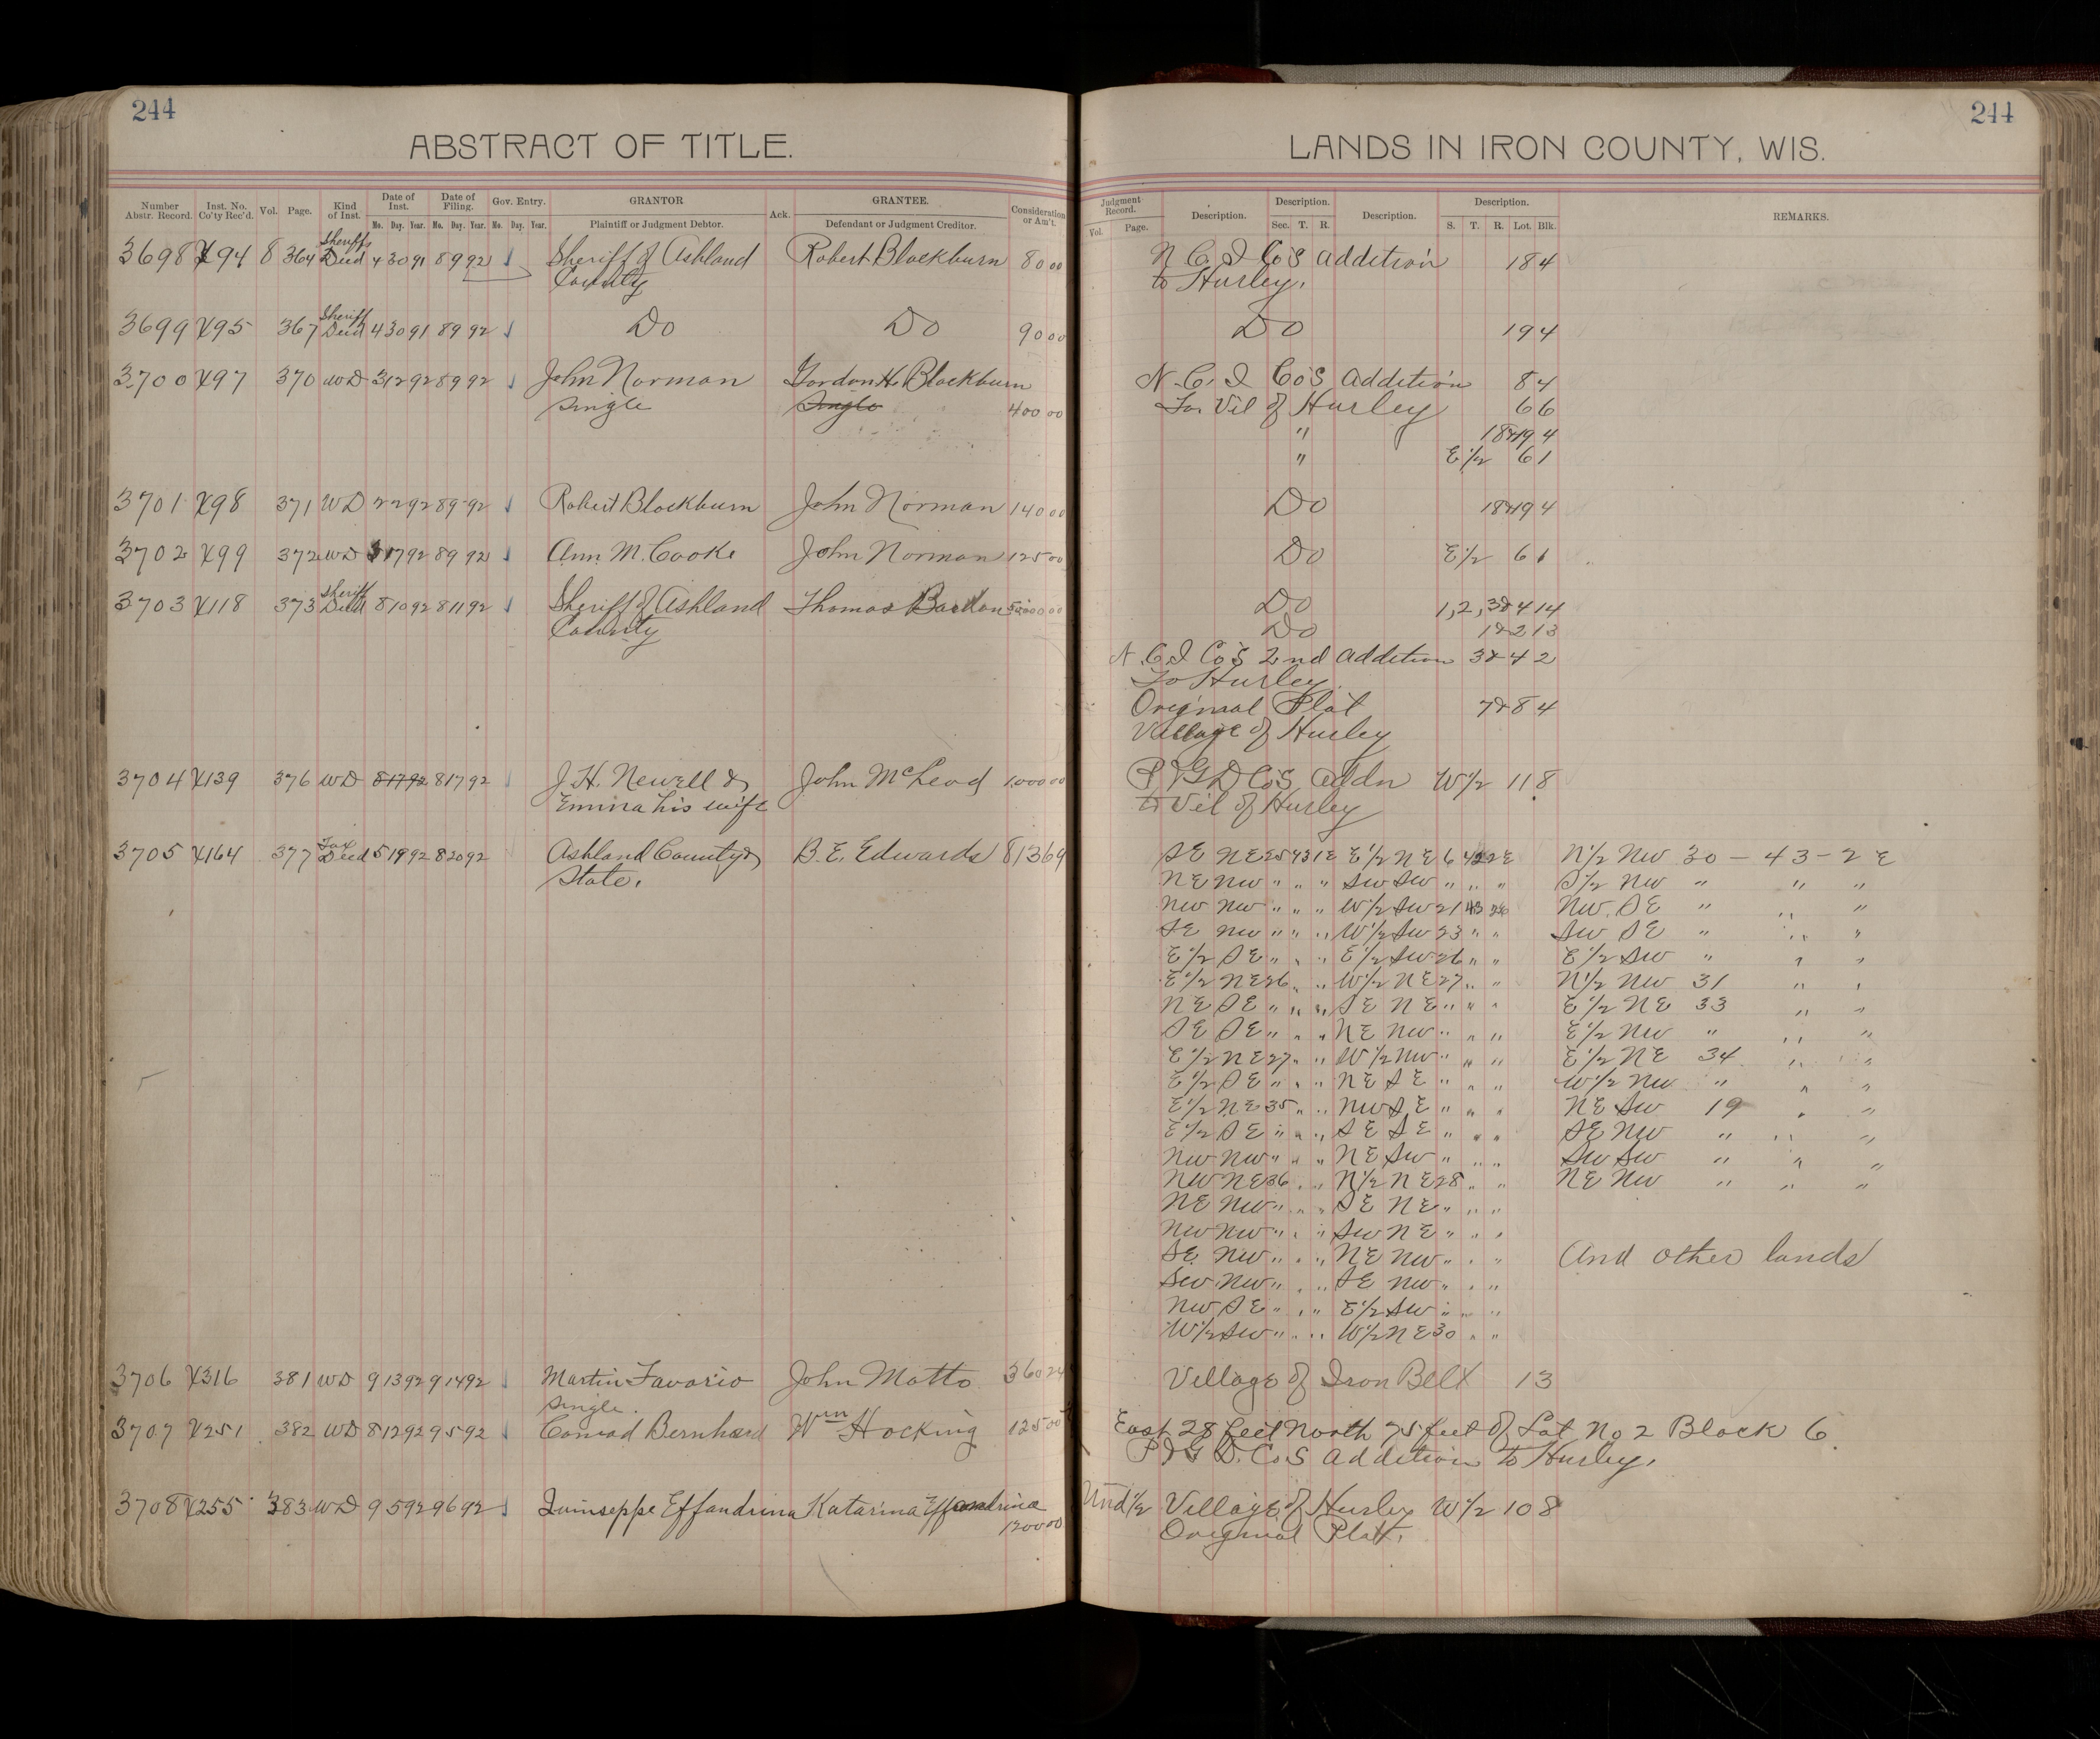 244
ABSTRACT OF TITLE.
Number Abstr. Record. Inst. No. Co'ty Rec'd. Vol. Page. Kind of Inst. Date of Inst. Mo. Day. Year. Date of Filing. Mo. Day. Year. Gov. Entry. Mo. Day. Year. GRANTOR Plaintiff or Judgment Debtor. Ack. GRANTEE. Defendant or Judgment Creditor. Consideration or Am't.
3698 X94 8 364 Sheriffs Deed 4 30 91 8 9 92 Sheriff of Ashland Robert Blackburn 80 00
County
3699 X95 367 Sheriff Deed 4 30 91 8 9 92 Do Do 90 00
3700 X97 370 WD 3 12 92 8 9 92 John Norman Gordon H. Blackburn
single single 400 00
3701 X98 371 WD 2 2 92 8 9 92 Robert Blackburn John Norman 140 00
3702 X99 372 WD 17 92 8 9 92 Ann. M. Cooke John Norman 125 00
3703 X118 373 Sheriff Deed 8 10 92 8 11 92 Sheriff of Ashland Thomas Bardon 5000 00
County
3704 X139 376 WD 8 17 92 8 17 92 J. H. Newell & John McLeod 1000 00
Emma his wife
3705 X164 377 Tax Deed 5 19 92 8 20 92 Ashland County & B. E. Edwards 813 69
State.
3706 X316 381 WD 9 13 92 9 14 92 Martin Favario John Motto 360 24
single.
3707 X251 382 WD 8 12 92 9 5 92 Conrad Bernhard Wm Hocking 125 00
3708 X255 383 WD 9 5 92 9 6 92 Quinseppe Effandrina Katarina Effandrina
1200 00
244
LANDS IN IRON COUNTY, WIS.
Judgment Record. Vol. Page. Description. Description. Sec. T. R. Description. Description. S. T. R. Lot. Blk. REMARKS.
N C I Co's Addition 18 4
to Hurley.
Do 19 4
N. C. I Co's Addition 8 4
To Vil of Hurley 6 6
" 18&19 4
" E 1/2 6 1
Do 18&19 4
Do E 1/2 6 1
Do 1,2,3&4 14
Do 1&2 13
N. C I Co's 2nd Addition 3&4 2
To Hurley
Original Plat 7&8 4
Village of Hurley
P I G D Co's Addn W 1/2 11 8
to Vil of Hurley
SE NE 25 43 1E E 1/2 NE 6 42 2E N 1/2 NW 30 - 43 - 2 E
NE NW " " " SW SW " " " S 1/2 NW " " "
NW NW " " " W 1/2 SW 21 43 2E NW. SE " " "
SE NW " " " W 1/2 SW 23 " " SW SE " " "
E 1/2 SE " " " E 1/2 SW 26 " " E 1/2 SW " " "
E 1/2 NE 26 " " W 1/2 NE 27 " " N 1/2 NW 31 " "
NE SE " " " SE NE " " " E 1/2 NE 33 " "
SE SE " " " NE NW " " " E 1/2 NW " " "
E 1/2 NE 27 " " W 1/2 NW " " " E 1/2 NE 34 " "
E 1/2 SE " " " NE SE " " " W 1/2 NW " " "
E 1/2 NE 35 " " NW SE " " " NE SW 19 " "
E 1/2 SE " " " SE SE " " " SE NW " " "
NW NW " " " NE SW " " " SW SW " " "
NW NE 36 " " N 1/2 NE 28 " " NE NW " " "
NE NW " " " SE NE " " "
NW NW " " " SW NE " " "
SE NW " " " NE NW " " " And other lands
SW NW " " " SE NW " " "
NW SE " " " E 1/2 SW " " "
W 1/2 SW " " " W 1/2 NE 30 " "
Village of Iron Belt 13
East 28 feet North 75 feet of Lot No 2 Block 6.
P I G D. Co's Addition to Hurley.
Und 1/2 Village of Hurley W 1/2 10 8
Original Plat.